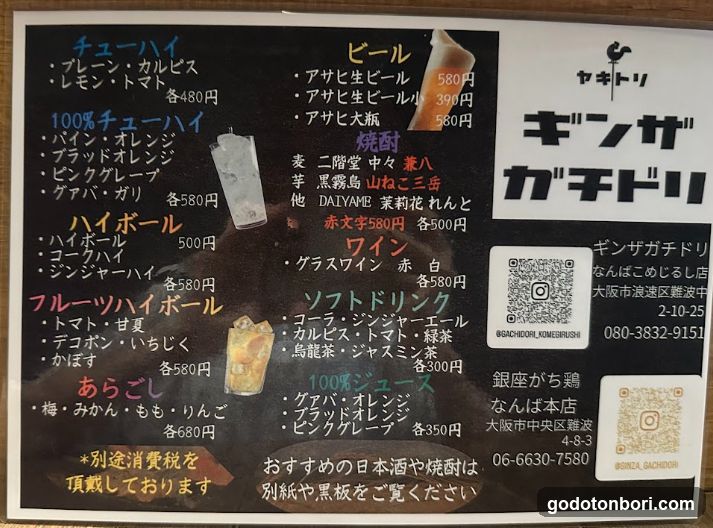 チューハイ
・プレーン・カルピス
・レモン・トマト
各480円
100%チューハイ
・パイン・オレンジ
・ブラッドオレンジ
・ピンクグレープ
・グァバ・ガリ
各580円
ハイボール
・ハイボール 500円
・コークハイ
・ジンジャーハイ
各580円
フルーツハイボール
・トマト・甘夏
・デコポン・いちじく
・かぼす
各580円
あらごし
・梅・みかん・もも・りんご
各680円
*別途消費税を
頂戴しております
ビール
・アサヒ生ビール 580円
・アサヒ生ビール小 390円
・アサヒ大瓶 580円
焼酎
麦 二階堂 中々 兼八
芋 黒霧島 山ねこ 三岳
他 DAIYAME 茉莉花 れんと
赤文字580円 各500円
ワイン
・グラスワイン 赤 白
各580円
ソフトドリンク
・コーラ・ジンジャーエール
・カルピス・トマト・緑茶
・烏龍茶・ジャスミン茶
各300円
100%ジュース
・グァバ・オレンジ
・ブラッドオレンジ
・ピンクグレープ 各350円
おすすめの日本酒や焼酎は
別紙や黒板をご覧ください
ヤキトリ
ギンザ
ガチドリ
ギンザガチドリ
なんばこめじるし店
大阪市浪速区難波中
2-10-25
080-3832-9151
@GACHIDORI_KOMEGIRUSHI
銀座がち鶏
なんば本店
大阪市中央区難波
4-8-3
06-6630-7580
@GINZA_GACHIDORI
godotonbori.com